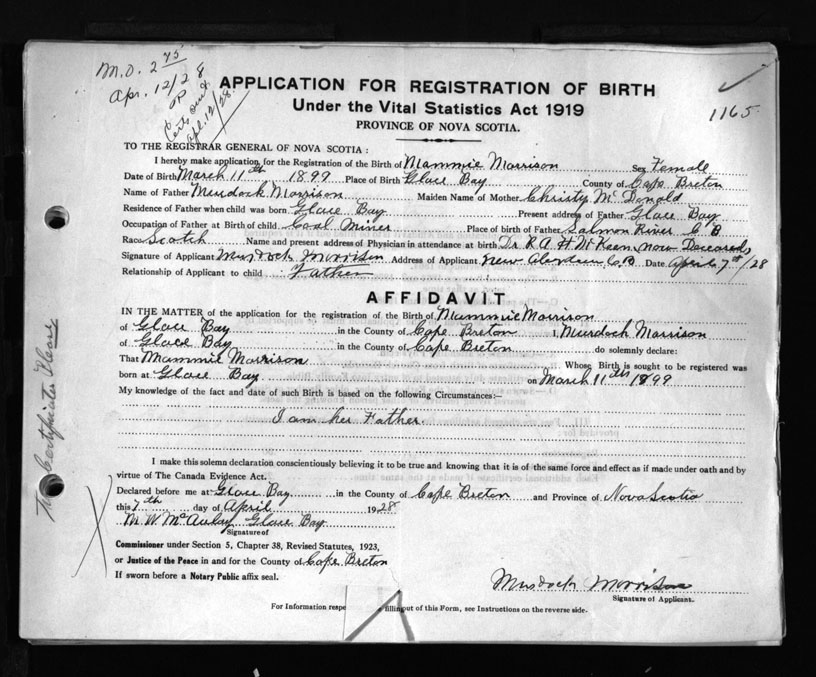 M.O. 2 75
Apr. 12/28
Certs out
Apl. 12/28.
APPLICATION FOR REGISTRATION OF BIRTH
Under the Vital Statistics Act 1919
1165
PROVINCE OF NOVA SCOTIA.
TO THE REGISTRAR GENERAL OF NOVA SCOTIA:
I hereby make application for the Registration of the Birth of Mammie Morrison Sex Female
Date of Birth March 11th 1899 Place of Birth Glace Bay County of Cape Breton
Name of Father Murdock Morrison Maiden Name of Mother Christy McDonald
Residence of Father when child was born Glace Bay Present address of Father Glace Bay
Occupation of Father at Birth of child Coal Miner Place of birth of Father Salmon River C B
Race Scotch Name and present address of Physician in attendance at birth Dr. R A H McKeen now Deceased
Signature of Applicant Murdock Morrison Address of Applicant New Aberdeen C.B Date April 7th/28
Relationship of Applicant to child Father
AFFIDAVIT
IN THE MATTER of the application for the registration of the Birth of Mammie Morrison
of Glace Bay in the County of Cape Breton I, Murdock Morrison
of Glace Bay in the County of Cape Breton do solemnly declare:
That Mammie Morrison Whose Birth is sought to be registered was
born at Glace Bay on March 11th 1899
My knowledge of the fact and date of such Birth is based on the following Circumstances:—
I am her Father.
I make this solemn declaration conscientiously believing it to be true and knowing that it is of the same force and effect as if made under oath and by
virtue of The Canada Evidence Act.
Declared before me at Glace Bay in the County of Cape Breton and Province of Nova Scotia
this 7th day of April 1928
M. W. McAulay Glace Bay
Signature of
Commissioner under Section 5, Chapter 38, Revised Statutes, 1923,
or Justice of the Peace in and for the County of Cape Breton
If sworn before a Notary Public affix seal.
Murdock Morrison
Signature of Applicant.
For Information respe filling out of this Form, see Instructions on the reverse side.
Certificates Please